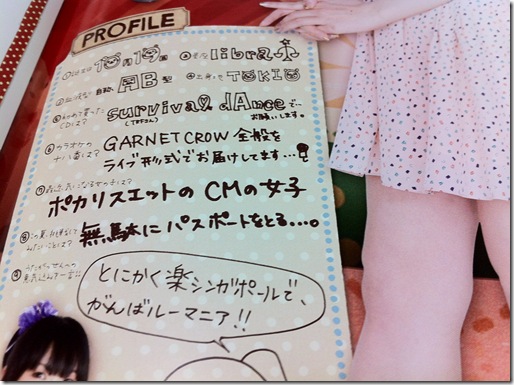 PROFILE
①誕生日 10月19日 ②星座 libra
③血液型 自称、AB型 ④出身地 TOKIO
⑤初めて買ったCDは? survival dAnceで…
(TRFさん) お願いします。
⑥カラオケの十八番は? GARNET CROW 全般を
ライブ形式でお届けします…
⑦最近気になる女の子は?
ポカリスエットの CMの女子
⑧この夏 してみたいことは? 無駄にパスポートをとる…。
⑨
とにかく楽シンガポールで、
がんばルーマニア!!